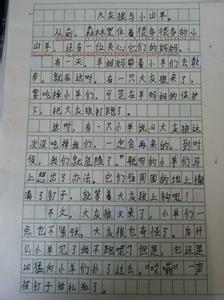 大灰狼与小山羊。
从前，森林里住着很多很多的小
山羊，还有一位关心它们的妈妈。
有一天，羊妈妈带着小羊们去散
步，就在这时，有一只大灰狼来了，
要吃掉小羊们，可是在羊妈妈的保护
下，把大灰狼打跑了。
这时，有一只小羊说：“大灰狼这
次没吃掉我们，一定会再来的，到时
候，我们就危险了。”聪明的小羊们马
上想出了办法，它们在周围的地上撒
满了钉子，就等着大灰狼上钩啦！
不久，大灰狼又来了，小羊们一
点也不紧张，大灰狼也奇怪了，为什
么小羊见了我不跑呢？但是，它还是
凶猛向小羊们扑了过去，“哎哟”一声
被钉子给扎死了。